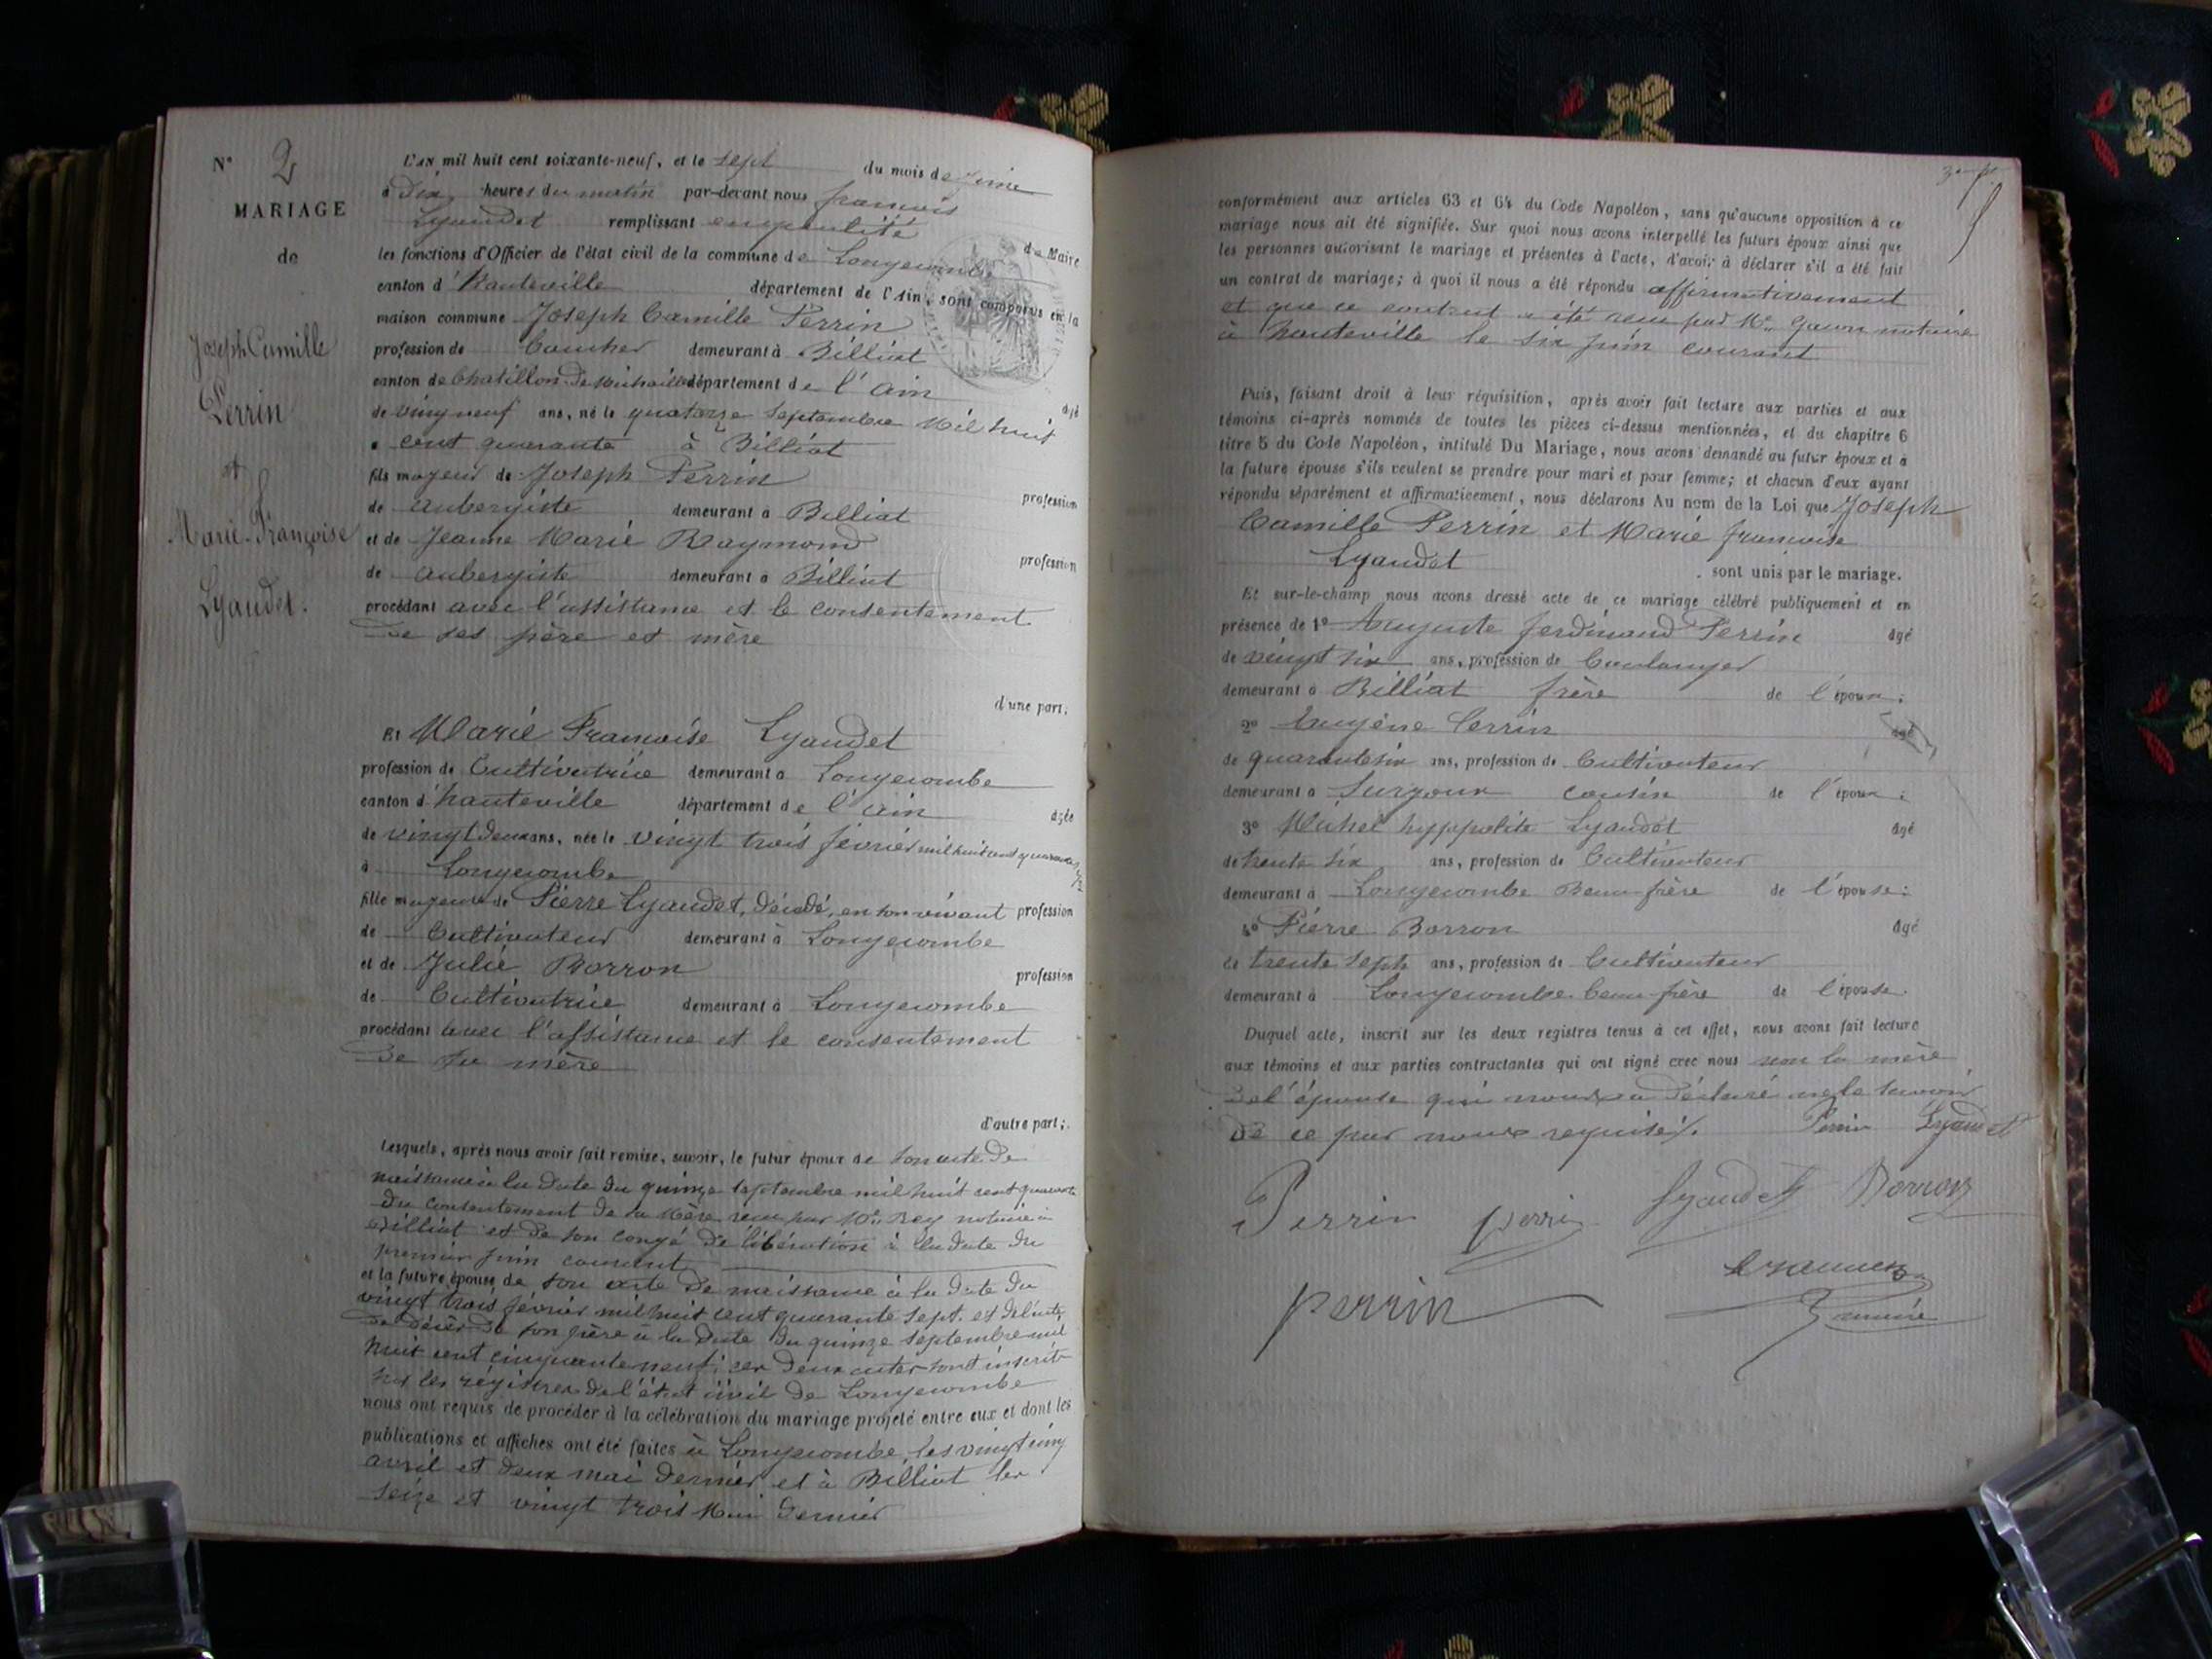 N° 2
MARIAGE
de
Joseph Camille
Perrin
et
Marie-Françoise
Lyaudet.
L'AN mil huit cent soixante-neuf, et le sept du mois de juin
à Dix heures du matin par-devant nous françois
Lyaudet remplissant en qualité de Maire
les fonctions d'Officier de l'état civil de la commune de Longecombe
canton d'hauteville département de l'Ain, sont comparus en la
maison commune Joseph Camille Perrin
profession de boucher demeurant à Billiat
canton de Chatillon-de-Michaille département de l'ain âgé
de vingneuf ans, né le quatorze septembre mil huit
cent quarante à Billiat
fils majeur de Joseph Perrin profession
de aubergiste demeurant à Billiat
et de Jeanne Marie Raymond profession
de aubergiste demeurant à Billiat
procédant avec l'assistance et le consentement
de ses père et mère
d'une part;
Et Marie Francoise Lyaudet
profession de Cultivatrice demeurant à Longecombe
canton d'hauteville département de l'ain âgée
de vingt deux ans, née le vingt trois février mil huit cent quarante sept
à Longecombe
fille majeure de Pierre Lyaudet, décédé, en son vivant profession
de Cultivateur demeurant à Longecombe
et de Julie Borron profession
de Cultivatrice demeurant à Longecombe
procédant avec l'assistance et le consentement
de sa mère
d'autre part;
Lesquels, après nous avoir fait remise, savoir, le futur époux de son acte de
naissance à la date du quinze septembre mil huit cent quarante
du consentement de sa mère reçu par Me Rey notaire à
Billiat et de son congé de libération à la date du
premier juin courant
et la future épouse de son acte de naissance à la date du
vingt trois février mil huit cent quarante sept. et de l'acte
de décès de son père à la date du quinze septembre mil
huit cent cinquante neuf; ces deux actes sont inscrits
sur les régistres de l'état civil de Longecombe
nous ont requis de procéder à la célébration du mariage projeté entre eux et dont les
publications et affiches ont été faites à Longecombe, les vingt cinq
avril et deux mai dernier, et à Billiat les
seize et vingt trois Mai dernier
conformément aux articles 63 et 64 du Code Napoléon, sans qu'aucune opposition à ce
mariage nous ait été signifiée. Sur quoi nous avons interpellé les futurs époux ainsi que
les personnes autorisant le mariage et présentes à l'acte, d'avoir à déclarer s'il a été fait
un contrat de mariage; à quoi il nous a été répondu affirmativement
et que ce contrat a été reçu par Me notaire
à hauteville le six juin courant
Puis, faisant droit à leur réquisition, après avoir fait lecture aux parties et aux
témoins ci-après nommés de toutes les pièces ci-dessus mentionnées, et du chapitre 6
titre 5 du Code Napoléon, intitulé Du Mariage, nous avons demandé au futur époux et à
la future épouse s'ils veulent se prendre pour mari et pour femme; et chacun d'eux ayant
répondu séparément et affirmativement, nous déclarons Au nom de la Loi que Joseph
Camille Perrin et Marie françoise
Lyaudet sont unis par le mariage.
Et sur-le-champ nous avons dressé acte de ce mariage célébré publiquement et en
présence de 1° Auguste ferdinand Perrin âgé
de vingt six ans, profession de boulanger
demeurant à Billiat frère de l'époux;
2° Eugène Perrin âgé
de quarante six ans, profession de Cultivateur
demeurant à Surjoux cousin de l'époux;
3° Michel hyppolite Lyaudet âgé
de trente six ans, profession de Cultivateur
demeurant à Longecombe Beau-frère de l'épouse;
4° Pierre Borron âgé
de trente sept ans, profession de Cultivateur
demeurant à Longecombe beau-frère de l'épouse.
Duquel acte, inscrit sur les deux registres tenus à cet effet, nous avons fait lecture
aux témoins et aux parties contractantes qui ont signé avec nous non la mère
de l'épouse qui nous a déclaré ne le savoir
de ce par nous requise. Perrin Lyaudet
Perrin perrin Lyaudet Borron
perrin